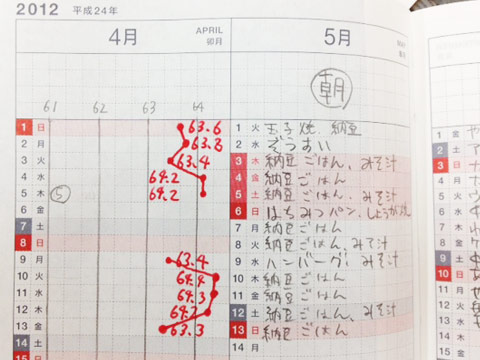 2012 平成24年
4月 APRIL 卯月
5月
朝
61 62 63 64
1 日 63.6
2 月 63.8
3 火 63.4
4 水 64.2
5 木 ⑤ 64.2
6 金
7 土
8 日
9 月 63.4
10 火 64.4
11 水 64.3
12 木 64.2
13 金 63.3
14 土
15 日
1 火 玉子焼、納豆
2 水 ぞうすい
3 木 納豆ごはん、みそ汁
4 金 納豆ごはん
5 土 納豆ごはん、みそ汁
6 日 はちみつパン、しょうが
7 月 納豆ごはん
8 火 納豆ごはん、みそ汁
9 水 ハンバーグ、みそ汁
10 木 納豆ごはん
11 金 納豆ごはん
12 土 納豆ごはん、みそ汁
13 日 納豆ごはん
14 月
1 金
2 土
3 日
4 月
5 火
6 水
7 木
8 金
9 土
10 日
11 月
12 火
13 水
14 木